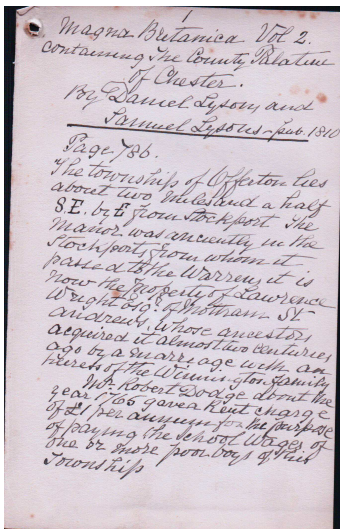 1
Magna Britanica Vol 2.
containing The County Palatine
of Chester.
By Daniel Lysons and
Samuel Lysons - pub. 1810
Page 786.
The township of Offerton lies
about two miles and a half
S.E. by E from Stockport The
Manor was anciently in the
Stockports, from whom it
passed to the Warrens, it is
now the property of Lawrence
Wright Esq. of Mottram St
Andrews, whose ancestors
acquired it almost two centuries
ago by a marriage with an
heiress of the Winnington family
Mr. Robert Dodge about the
year 1765 gave a Rent charge
of £1 per annum for the purpose
of paying the School Wages of
one or more poor boys of this
Township